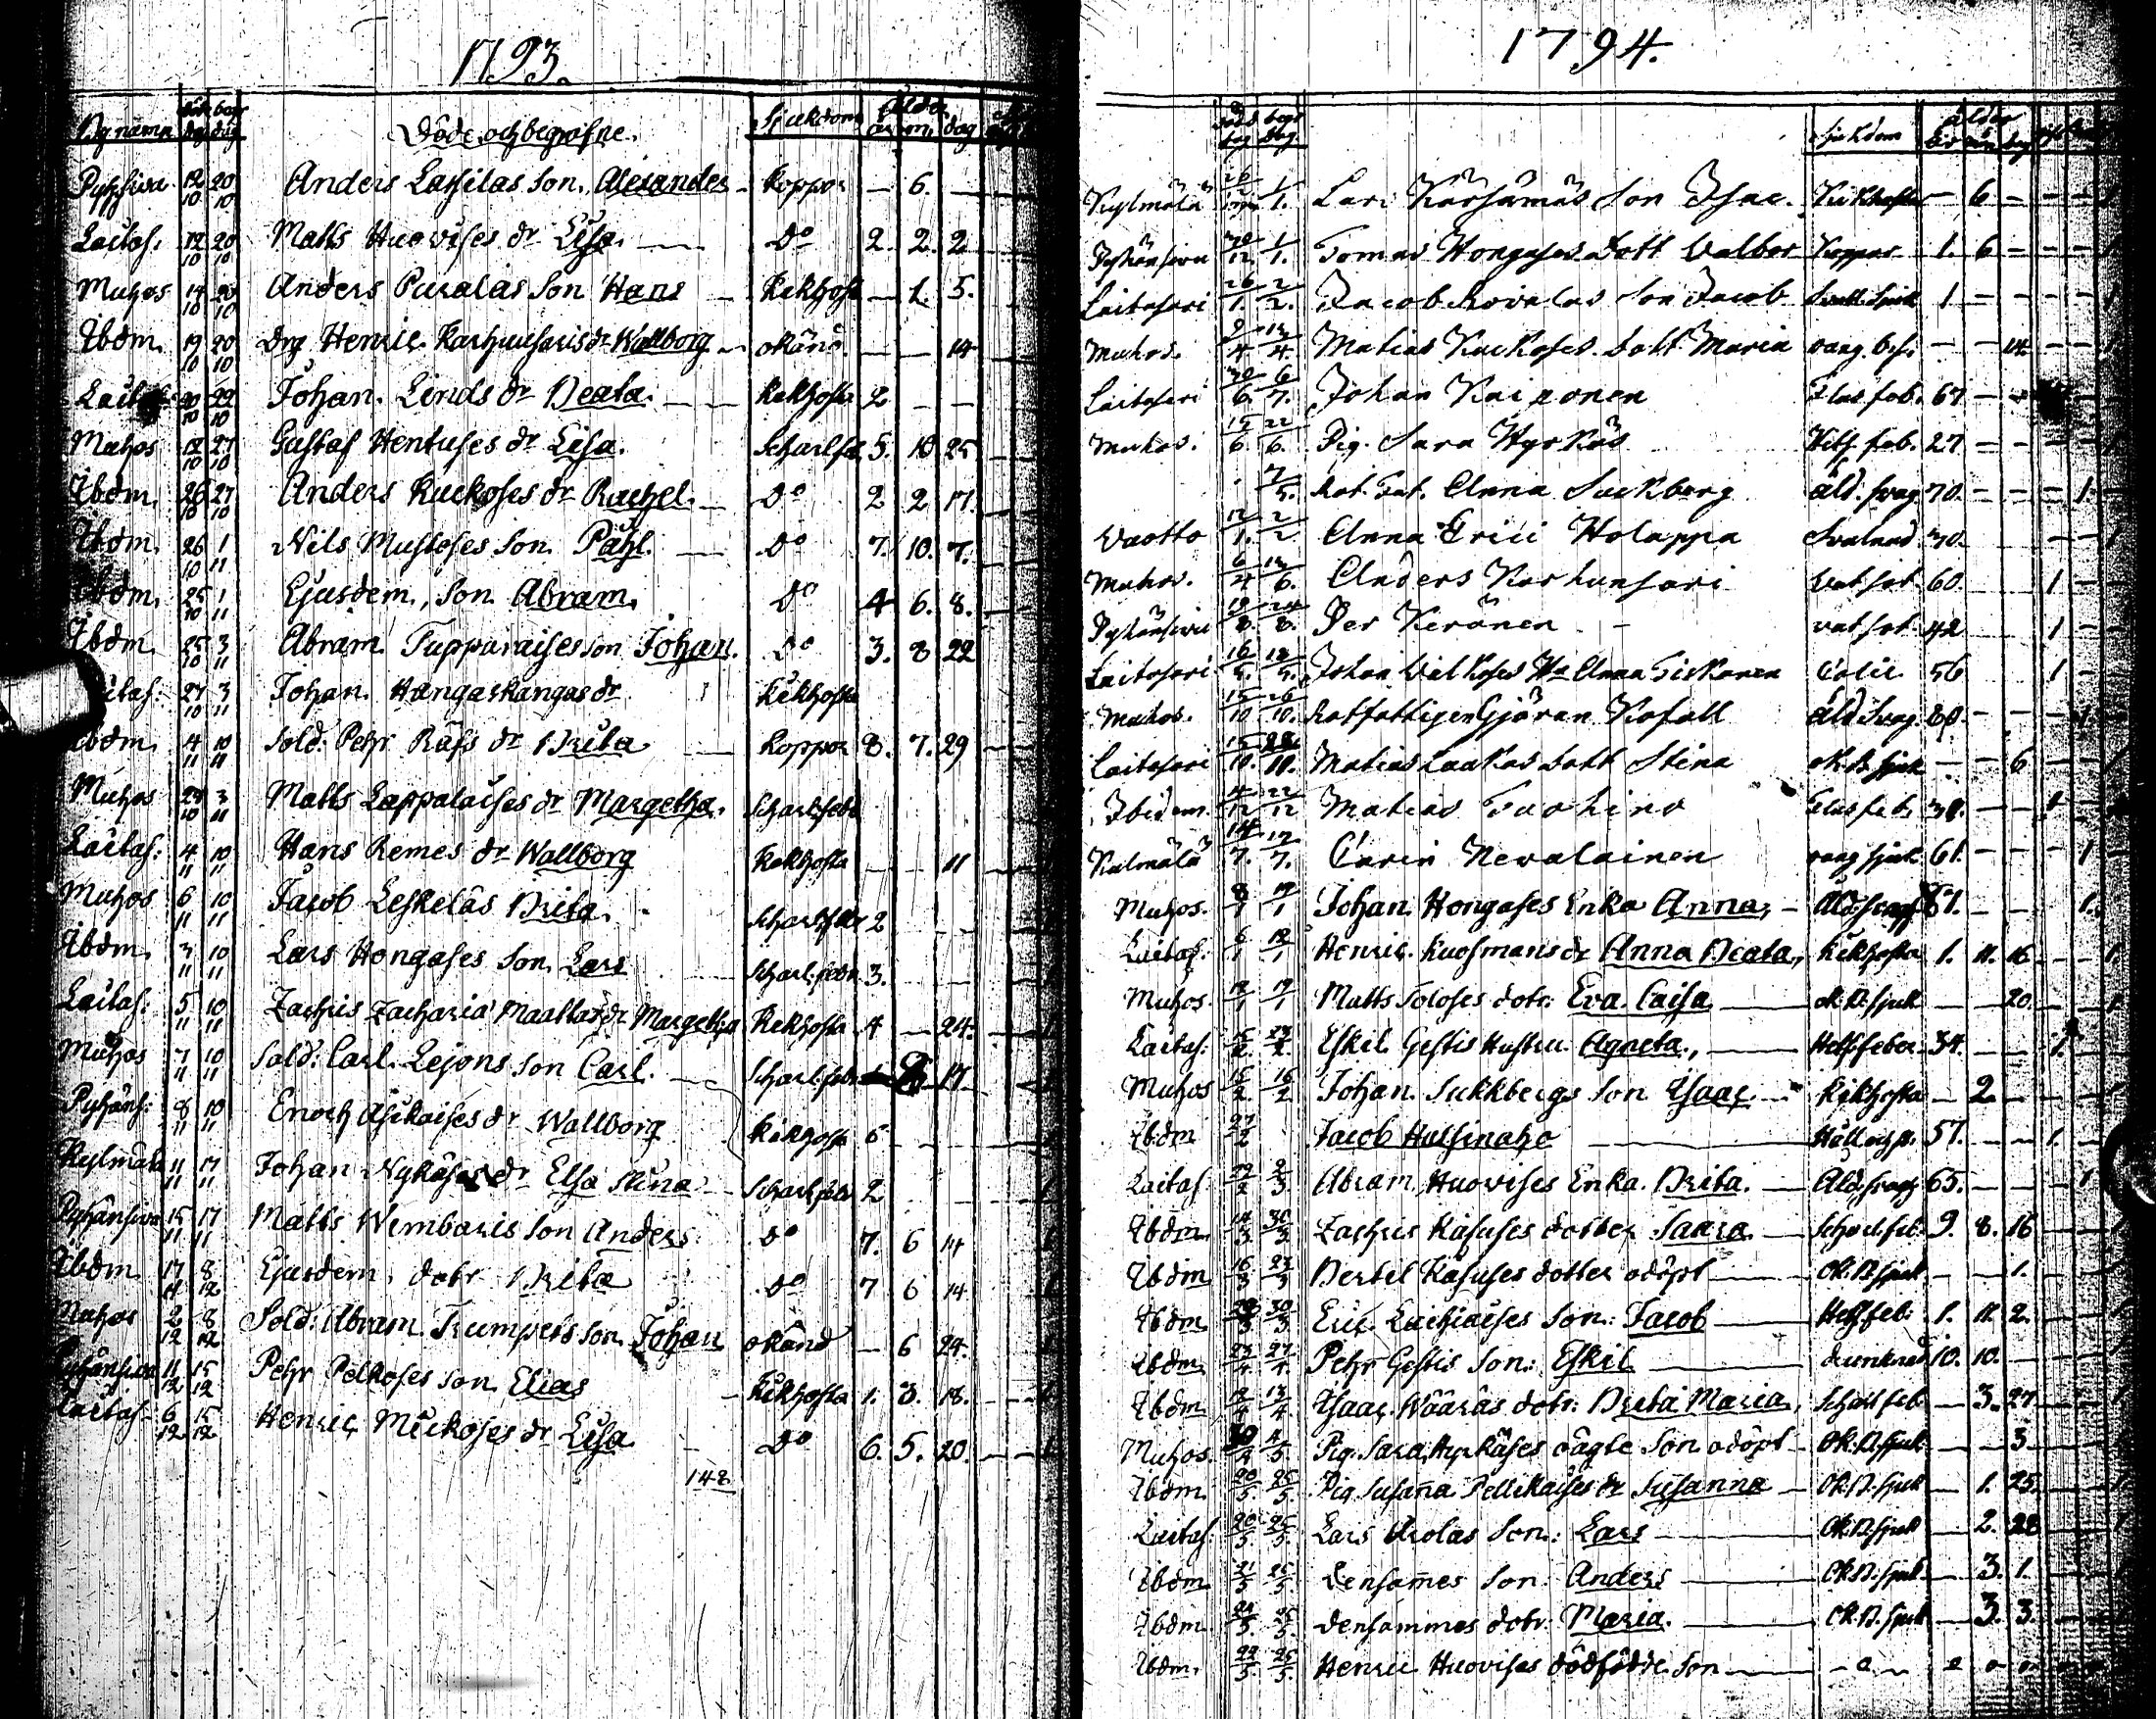 1793.
Bynamn död dag begr dag Döde och begrafne. Sjukdom Ålder år m. dag
Pyhäsiva 12/10 20/10 Anders Lassilas Son, Alexander koppor — 6. —
Laitas. 12/10 20/10 Matts Huovises dr Lisa Do 2. 2. 2
Muhos 14/10 20/10 Anders Puralas Son Hans Kikhosta — 1. 5.
Ibdm. 19/10 20/10 Drg Henric Karhusaris dr Wallborg okänd — — 14
Laitas. 20/10 29/10 Johan Linds dr Beata Kikhosta 2 — —
Muhos 12/10 27/10 Gustaf Hentuses dr Lisa. Scharlf. 5. 10 25
Ibdm. 26/10 27/10 Anders Kuckoses dr Rachel. Do 2 2 17.
Ibdm. 26/10 1/11 Nils Mustoses Son Påhl. Do 7. 10. 7.
Ibdm. 25/10 1/11 Ejusdem, Son Abram. Do 4 6. 8.
Ibdm. 25/10 3/11 Abram Tupparaises son Johan. Do 3. 8 22
Laitas: 27/10 3/11 Johan Hangaskangas dr Kikhosta
Ibdm. 4/11 10/11 Sold. Pehr Räfs dr Brita Koppor 8. 7. 29
Muhos 29/10 3/11 Matts Lappalaises dr Margetha. Scharlfeb.
Laitas: 4/11 10/11 Hans Remes dr Wallborg Kikhosta — — 11
Muhos 6/11 10/11 Jacob Leskeläs Brita. Scharlfeb 2
Ibdm. 3/11 10/11 Lars Hongases Son Lars Scharl.febr 3.
Laitas: 5/11 10/11 Zachris Zacharia Maattas dr Margetha Kikhosta 4 — 24.
Muhos 7/11 10/11 Sold: Carl Lejons Son Carl. Scharl.febr 17.
Pyhäns: 8/11 10/11 Enoch Asikaises dr Wallborg Kikhosta 6
Kylmälä 11/11 17/11 Johan Nykäses dr Elsa Stina Scharlfebr 2
Pyhänsiva 15/11 17/11 Matts Wimbaris Son Anders Do 7. 6 14
Ibdm. 17/11 8/12 Ejusdem dotr Brita Do 7 6 14.
Muhos 2/12 8/12 Sold: Abram Trumpets son Johan okänd — 6 24.
Pyhänsiva 11/12 15/12 Pehr Pelkoses Son Elias Kikhosta 1. 3. 18.
Laitas. 6/12 15/12 Henric Mickoses dr Lisa Do 6. 5. 20.
148
1794.
död dag begr dag Sjukdom ålder
Kylmälä 26/12 1/1. Lars Kärsämäs Son Isac. Kikhosta — 6 —
Pyhänsiva 30/12 1/1. Tomas Hongases Dott Valbor Koppor 1. 6 —
Laitasari 26/1. 2/2. Jacob Roivolas Son Jacob 1 — —
Muhos. 9/4 13/4. Matias Kuckoses Dott Maria — — 14
Laitasari 30/6. 6/7. Johan Kaixonen 67
Muhos. 15/6. 22/6. Pig. Sara Hyrkäs Hits. feb. 27
7/5. Rot. Fat. Anna Suckberg Åld. svag. 70. — — — 1.
Vaotto 12/1. 2/2 Anna Erici Holappa Svalnad 70.
Muhos. 6/4 13/6. Anders Karhunsari vatsot 60. 1
Pyhänsiva 19/8. 24/8. Per Keränen vatsot. 42 1
Laitasari 16/5. 18/5. Johan Vilkoses Ha Anna Tiskanen Colic 56 1
Muhos. 15/10 26/10. Rotfattigen Gjöran Kofall Åld Svag. 80.
Laitasari 15/10. Matias Laakos Dott Stina ok. B. sjuk — — 6
Ibidem. 4/12 22/12 Matias Tuohino 38.
Kylmälä 14/7. 17/7. Carin Nevalainen 61.
Muhos. 8/1 19/1 Johan Hongases Enka Anna, Åld.svagh 1.
Laitas. 6/1 12/1 Henric Kuosmans dr Anna Beata, Kikhosta 1. 11. 16
Muhos. 12/1 19/1 Matts Toloses dotr: Eva Caisa ok. B. sjuk — — 20.
Laitas: Eskil Gestis Hustru Agneta, Hetsfeber 34. 1.
Muhos 15/2 16/2 Johan Sukkbergs Son Isaac Kikhosta — 2
Ibdm 27/2 Jacob Halsinaho 57. — — 1.
Laitas. 2/3 Abram Huovises Enka Brita. Åld.svagh 65. 1
Ibdm 30/3 Zachris Kasuses dotter Saara Scharl.feb. 9. 8. 16
Ibdm 16/3 23/3 Bertel Kasuses dotter odöpt Ok. B. sjuk — — 1.
Ibdm 30/3 Eric Laihiaises Son: Jacob Hets.feb. 1. 11. 2.
Ibdm 27/4. Pehr Gestis Son: Eskil drunknad 10. 10.
Ibdm 12/4 13/4. Isaac Wääräs dotr: Brita Maria, Scharl feb — 3. 27
Muhos. 4/5 Pig. Sara Hyrkäses oägte Son odöpt Ok. B. sjuk — — 3
Ibdm. 20/5. 25/5. Pig Susanna Pellikaises dr Susanna Ok. B. sjuk — 1. 25.
Laitas. 20/5. 25/5. Lars Arolas Son: Lars Ok. B. sjuk — 2. 28
Ibdm 21/5 25/5 Densammes Son: Anders Ok. B. sjuk — 3. 1.
Ibdm 25/5. Densammes dotr. Maria. Ok. B. sjuk — 3. 3.
Ibdm. 22/5. 25/5. Henric Huovises dödfödde Son